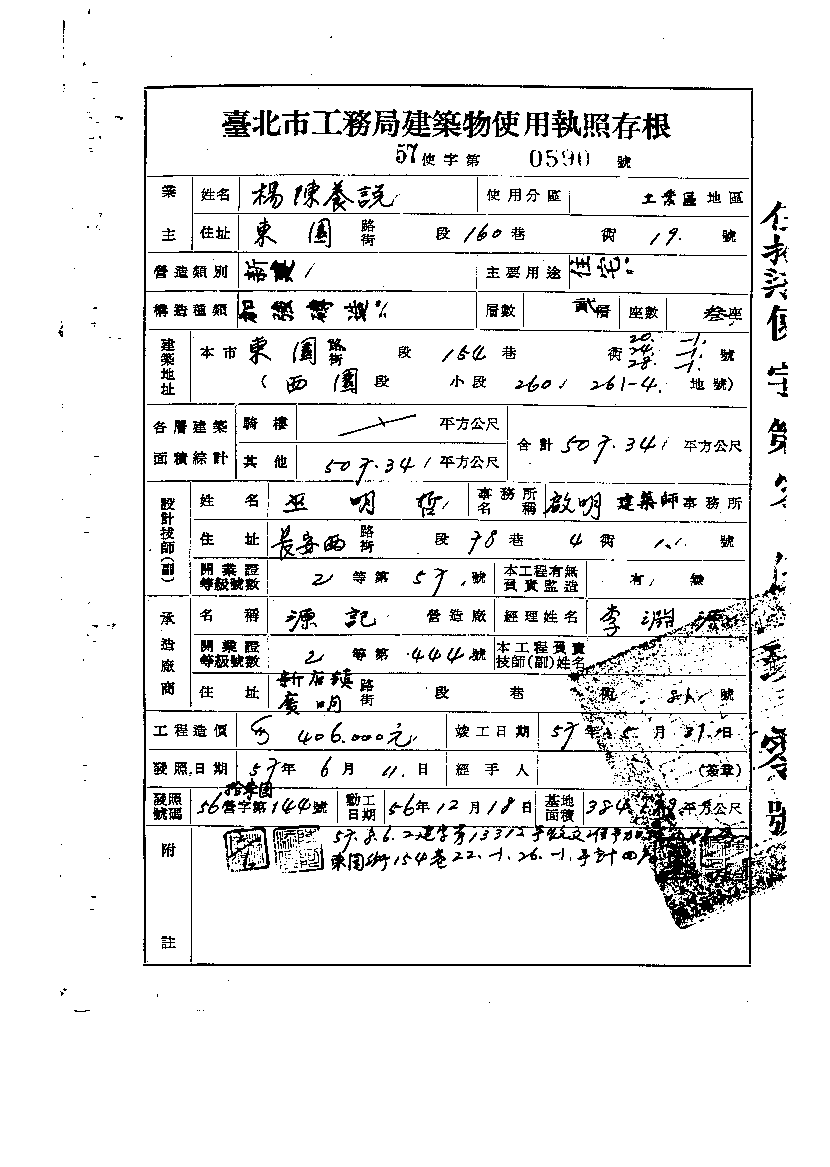 臺北市工務局建築物使用執照存根
57使字第 0590 號
業主 姓名 楊陳養説 使用分區 工業區地區
住址 東園 路街 段 160巷 衖 19. 號
營造類別 新建 主要用途 住宅
構造種類 加強磚造 層數 貳層 座數 叁座
建築地址 本市 東園 路街 段 154 巷 衖 20.-1. 24.-1. 28.-1. 號
(西園段 小段 260. 261-4. 地號)
各層建築面積綜計 騎樓 平方公尺 合計 507.34 平方公尺
其他 507.34 平方公尺
設計技師(副) 姓名 巫明哲 事務所名稱 啟明 建築師事務所
住址 長安西 路街 段 78巷 4衖 1. 號
開業證等級號數 2 等第 57. 號 本工程有無負責監造 有 無
承造廠商 名稱 源記 營造廠 經理姓名 李潤源
開業證等級號數 2 等第 444號 本工程負責技師(副)姓名
住址 新店鎮廣明 路街 段 巷 衖 號
工程造價 406.000元 竣工日期 57年5月 日
發照日期 57年6月11.日 經手人 (簽章)
發照號碼 56營字第144號 動工日期 56年12月18日 基地面積 384. 平方公尺
附註 57.8.6.
東園街154巷22.-1.26.-1.號計四